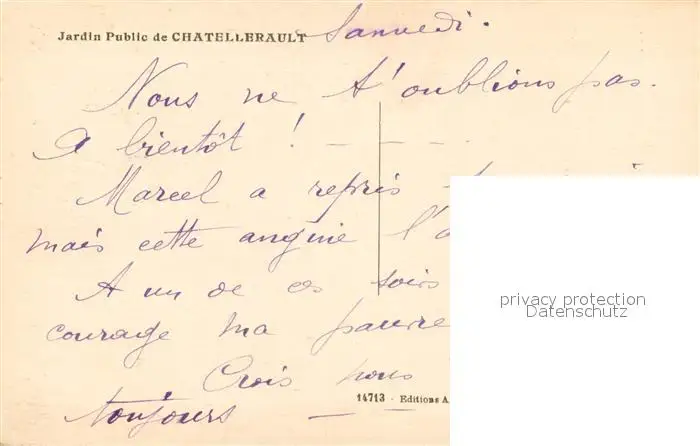 Jardin Public de CHATELLERAULT Samedi.
Nous ne t'oublions pas.
A bientôt !
Marcel a repris
mais cette angine l'a
A un de ces soirs
courage ma pauvre
Crois nous
toujours
14713 - Editions A.
privacy protection
Datenschutz